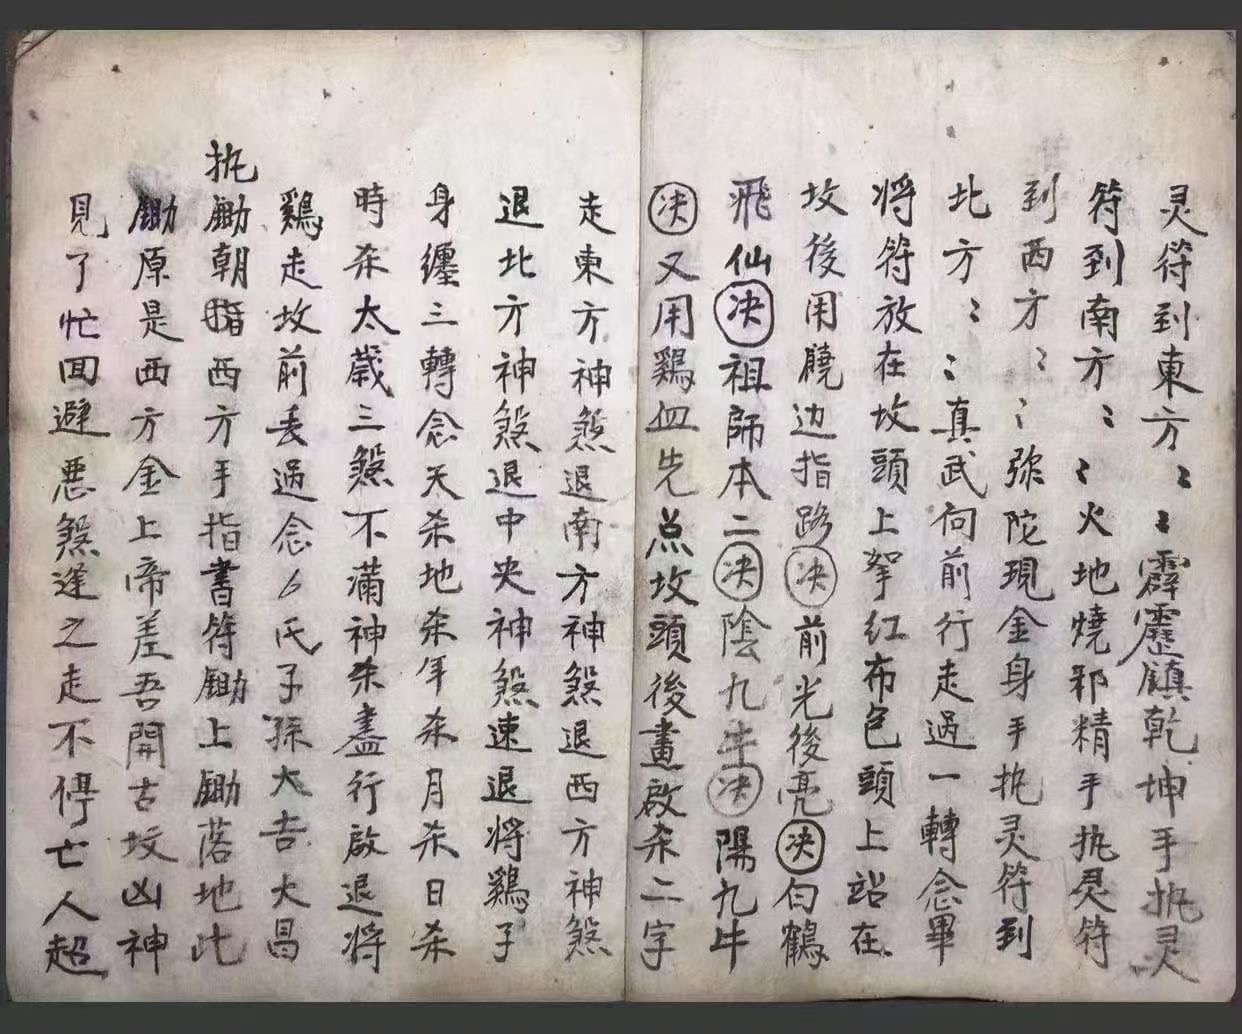 灵符到東方〻〻霹靂鎮乾坤手执灵
符到南方〻〻火地燒邪精手执灵符
到西方〻〻弥陀現金身手执灵符到
北方〻〻真武向前行走過一轉念畢
将符放在坟頭上拏红布包頭上站在
坟後用饒边指路决前光後亮决白鶴
飛仙决祖師本二决陰九牛决陽九牛
决又用鷄血先点坟頭後畫啟杀二字
走東方神煞退南方神煞退西方神煞
退北方神煞退中央神煞速退将鷄子
身纏三轉念天杀地杀年杀月杀日杀
時杀太歲三煞不滿神杀盡行啟退将
鷄走坟前丢過念厶氏子孫大吉大昌
执鋤朝西方手指書符鋤上鋤落地此
鋤原是西方金上帝差吾開古坟凶神
見了忙回避悪煞逢之走不停亡人超